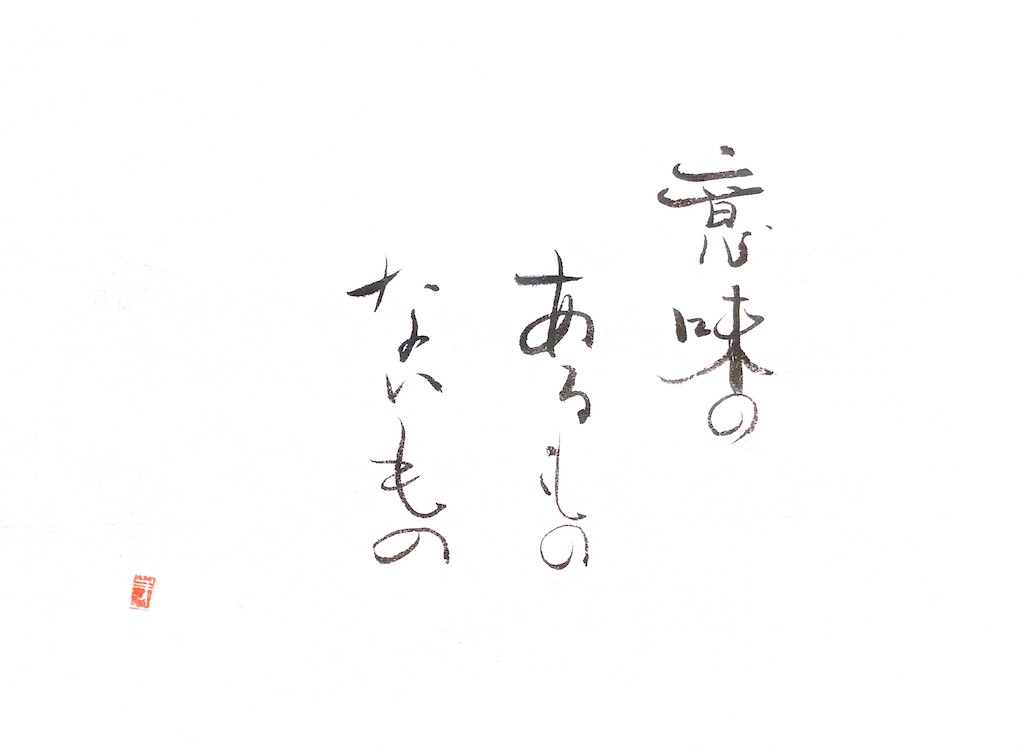 意味の
あるもの
ないもの